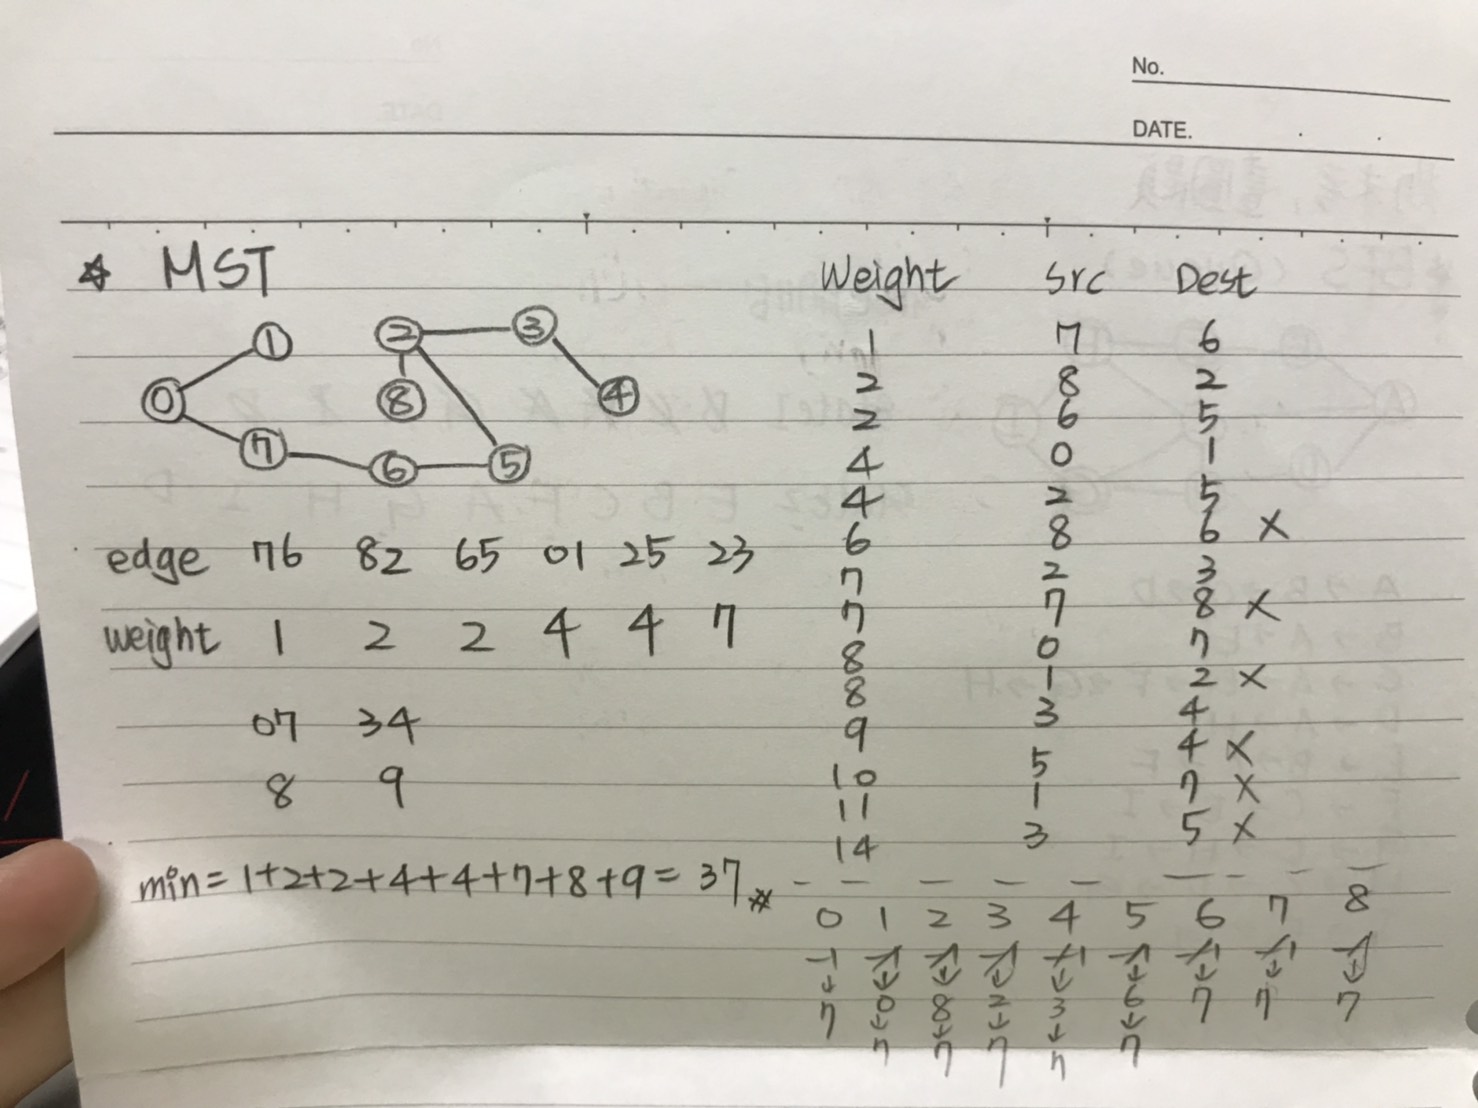 No.
DATE.
☆ MST
1
2
3
0
8
4
7
6
5
edge 76 82 65 01 25 23
weight 1 2 2 4 4 7
07 34
8 9
min = 1+2+2+4+4+7+8+9 = 37 #
Weight Src Dest
1 7 6
2 8 2
2 6 5
4 0 1
4 2 5
6 8 6 X
7 2 3
7 7 8 X
8 0 7
8 1 2 X
9 3 4
10 5 4 X
11 1 7 X
14 3 5 X
0 1 2 3 4 5 6 7 8
-1 -1 -1 -1 -1 -1 -1 -1 -1
↓ ↓ ↓ ↓ ↓ ↓ ↓ ↓ ↓
7 0 8 2 3 6 7 7 7
↓ ↓ ↓ ↓ ↓
7 7 7 7 7